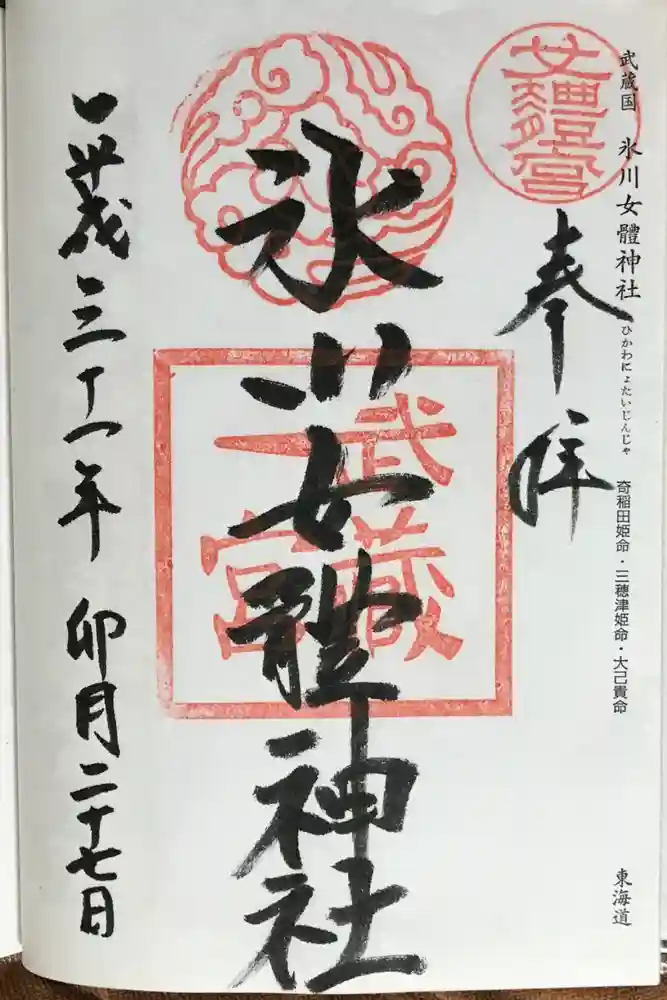 武蔵国 氷川女體神社 ひかわにょたいじんじゃ 奇稲田姫命・三穂津姫命・大己貴命 東海道
女體宮
奉拝
氷川女體神社
武蔵
一宮
平成三十一年 卯月二十七日